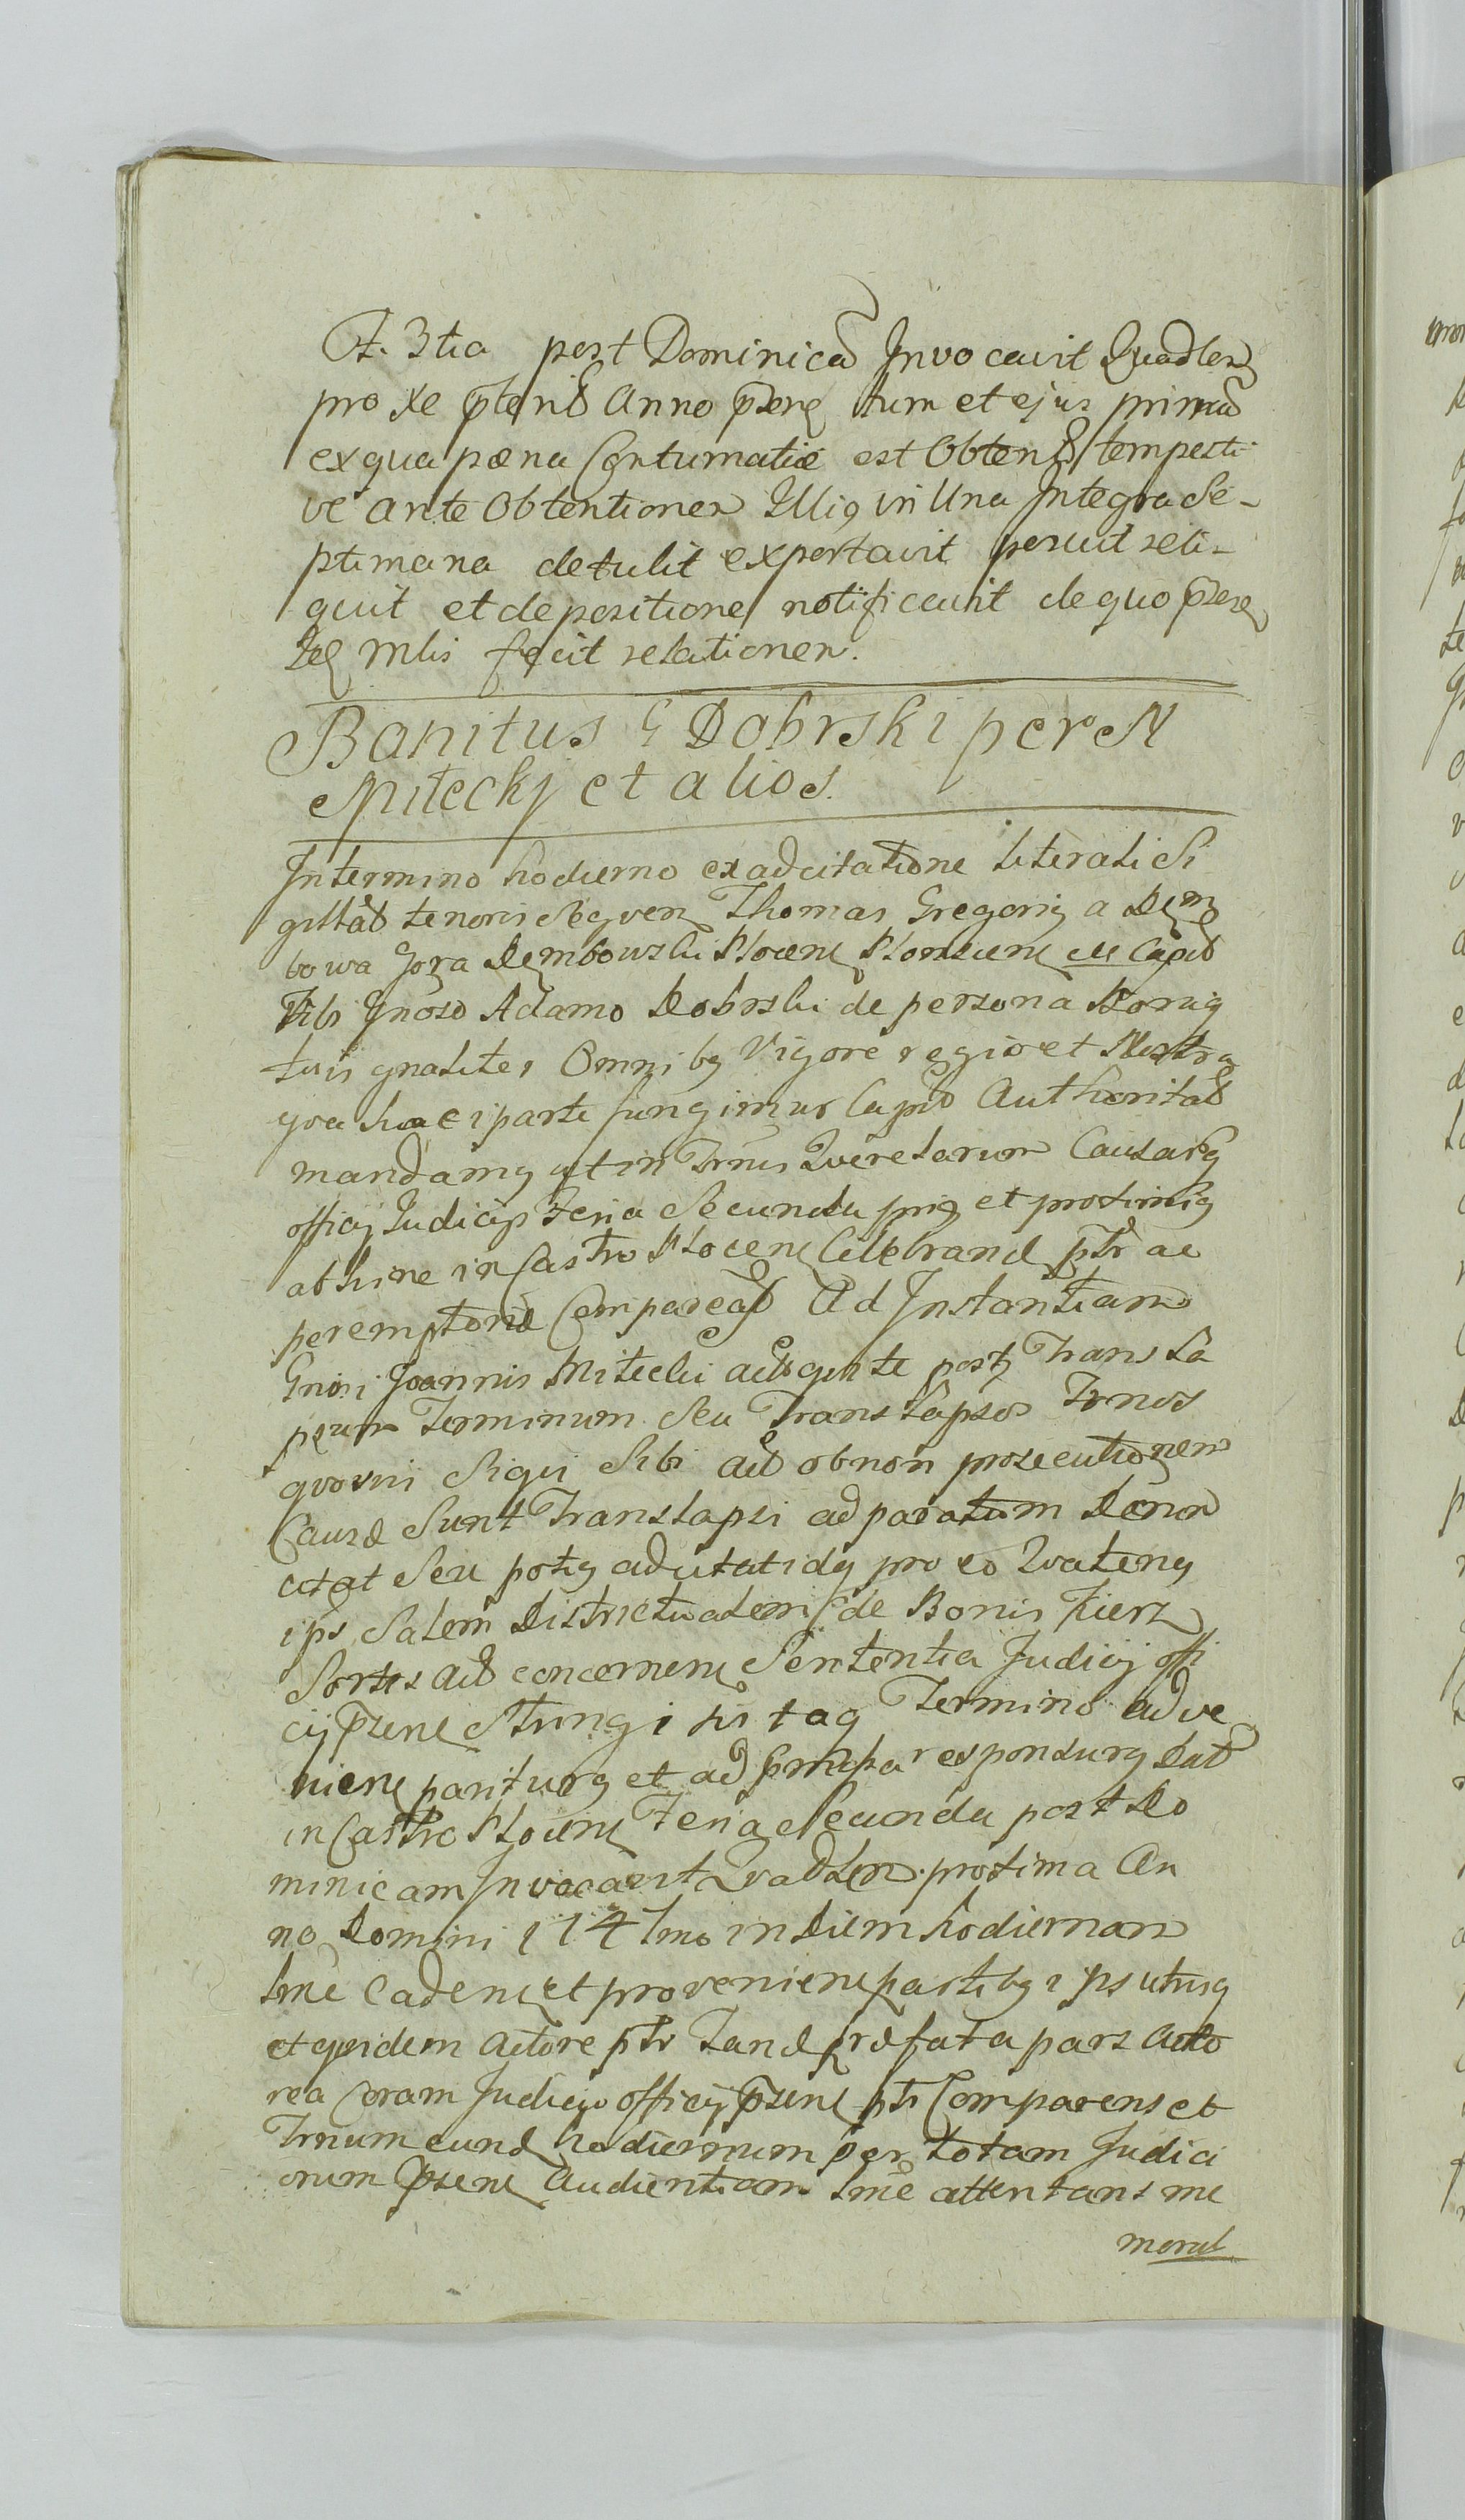 F. 3tia post Dominica Invocavit Quadlem
proxe pterit Anno prene tum et ejus prima
ex qua pœna Contumatiæ est Obtent tempesti-
ve ante Obtentionem Illig in Una Integra Se-
ptimana detulit exportavit posuit reli-
quit et depositione notificavit de quo prene
Ide Mlis fecit relationem.
Banitus G Dobrski per N
Miteckj et alios.
In termino hodierno ex adcitatione literali Si
gillat tenoris Sequen Thomas Gregorig a Dem
bowa Gora Dembowski Plocen Plonscen Capit
Tibi Gnoso Adamo Dobrski de persona Bonig
tuis gnaliter Omnibg Vigore regio et Nostra
qva hac i parte fungimur Capit Authoritat
mandamg ut in Trnis Querelarum Causarg
officij Judicijs Feria Secunda et proximig
abhinc in Castro Plocen Celebrand ptr ac
peremptorie Compareas Ad Instantiam
Gnosi Joannis Mitecki post Transla
psum Terminum Seu Translapsos Trnos
qvosvis Siqui Sibi act ob non prosecutionem
Causæ Sunt Translapsi ad paratam
citat Seu potig adcitatidg pro eo Quateng
ips Salem Districtualem de Bonis Kierz
Sortis act concernen Sententia Judicij offi
cij przen Termino adve
nien pariturg et ad prmissa responsurg Dat
in Castro Plocen Feria Secunda post Do
minicam Invocavit Quadlem proxima An
no Domini 1747mo in Diem hodiernam
lme Caden et provenien partibg ips utrisq
et quidem Actore ptr Tand præfata pars Acto
rea Coram Judicio officij przen ptr Comparens et
Trnum eund hodiernum per totam Judici
orum przen Audientiam lme attentans me
morat